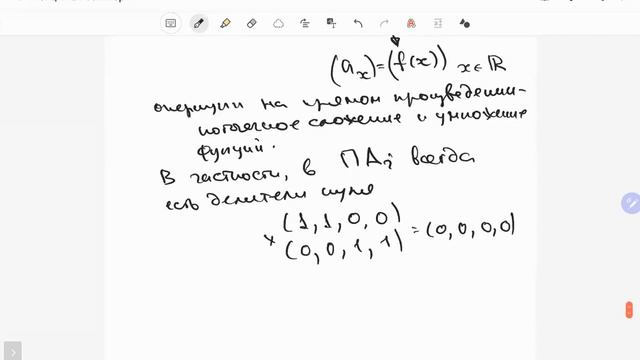 (aₓ)=(f(x)) x∈ℝ
операции на прямом произведении-
поточечное сложение и умножение
функций.
В частности, в ΠAᵢ всегда
есть делители нуля
(1,1,0,0)
× =(0,0,0,0)
(0,0,1,1)